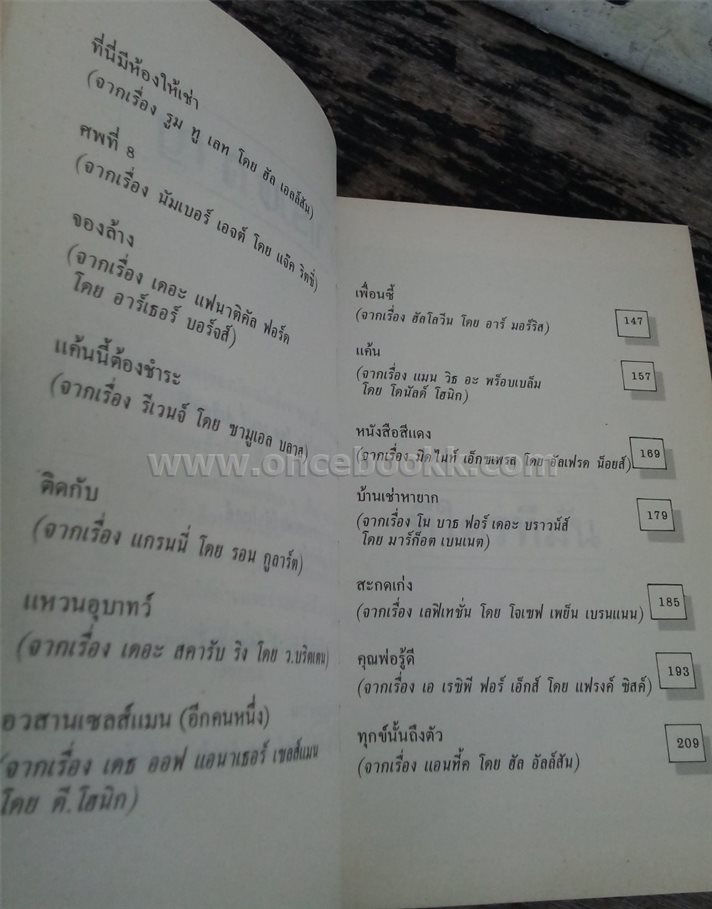 ที่นี่มีห้องให้เช่า
(จากเรื่อง รูม ทู เลท โดย ฮัล เอลล์สัน)
ศพที่ 8
(จากเรื่อง นัมเบอร์ เอจต์ โดย แจ๊ค ริตชี่)
จองล้าง
(จากเรื่อง เดอะ แฟนาติคัล ฟอร์ด
โดย อาร์เธอร์ บอร์จส์)
แค้นนี้ต้องชำระ
(จากเรื่อง รีเวนจ์ โดย ซามูเอล บลาส)
ติดกับ
(จากเรื่อง แกรนนี่ โดย รอน กูลาร์ต)
แหวนอุบาทว์
(จากเรื่อง เดอะ สคารับ ริง โดย ว.บริตเตน)
อวสานเซลส์แมน (อีกคนหนึ่ง)
(จากเรื่อง เดธ ออฟ แอนาเธอร์ เซลส์แมน
โดย ดี.โฮนิก)
เพื่อนซี้
(จากเรื่อง ฮัลโลวีน โดย อาร์ มอร์ริส)
147
แค้น
(จากเรื่อง แมน วิธ อะ พร็อบเบล็ม
โดย โดนัลด์ โฮนิก)
157
หนังสือสีแดง
(จากเรื่อง มิดไนท์ เอ็กซเพรส โดย อัลเฟรด น็อยส์)
169
www.oncebookk.com
บ้านเช่าหายาก
(จากเรื่อง โน บาธ ฟอร์ เดอะ บราวน์ส์
โดย มาร์ก็อต เบนเนต)
179
สะกดเก่ง
(จากเรื่อง เลฟิเทชั่น โดย โจเซฟ เพย็น เบรนแนน)
185
คุณพ่อรู้ดี
(จากเรื่อง เอ เรซิพี ฟอร์ เอ็กส์ โดย แฟรงค์ ซิสค์)
193
ทุกข์นั้นถึงตัว
(จากเรื่อง แอนทิ้ค โดย ฮัล อัลล์สัน)
209